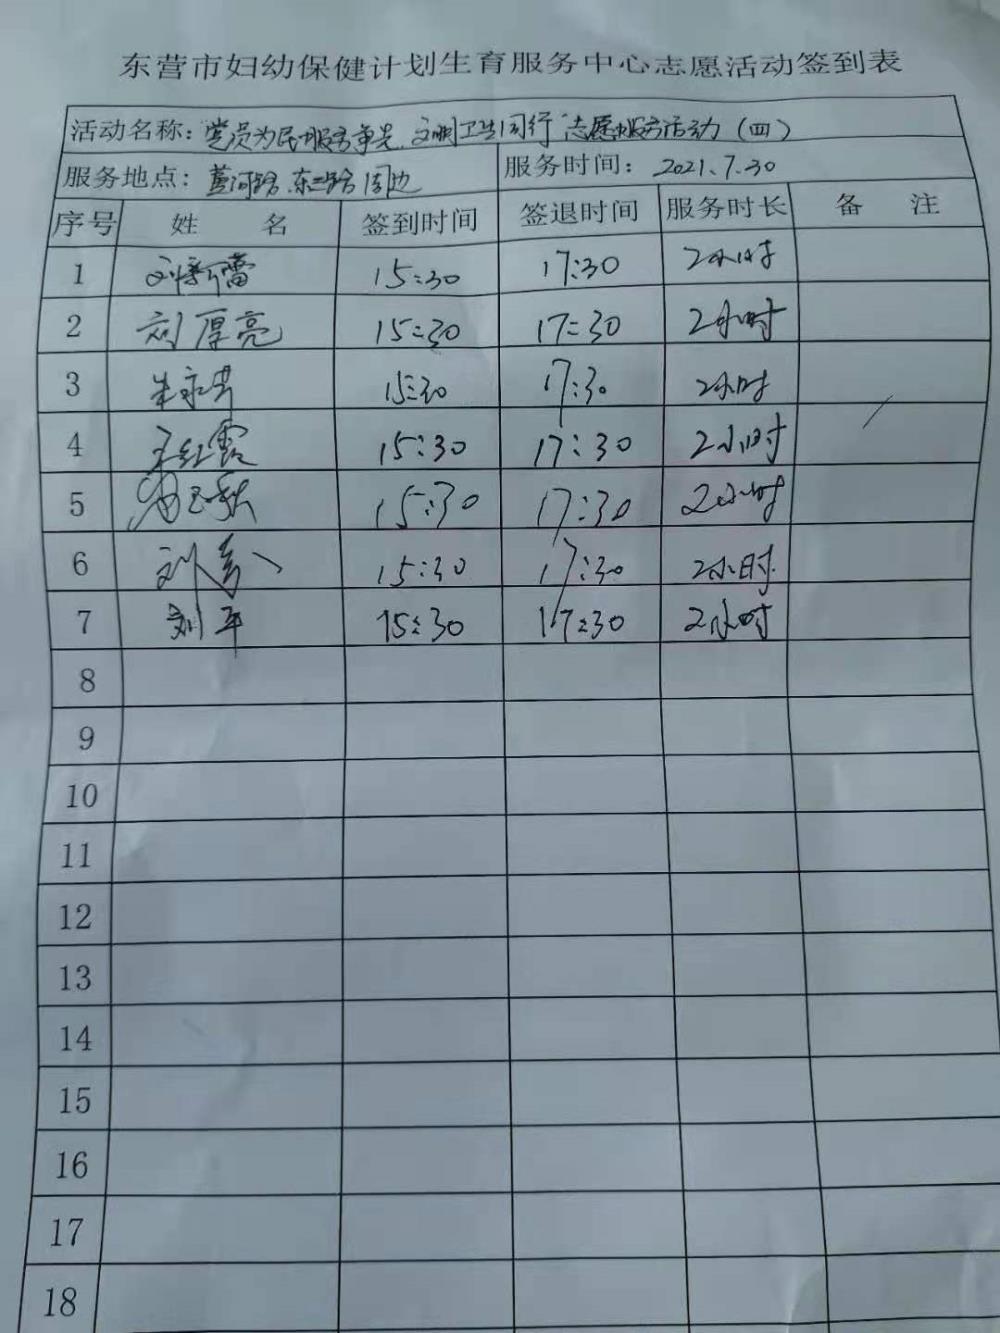 东营市妇幼保健计划生育服务中心志愿活动签到表
活动名称：党员为民服务争先、文明卫生同行 志愿服务活动（四）
服务地点：黄河路、东二路周边 服务时间：2021.7.30
序号 姓 名 签到时间 签退时间 服务时长 备 注
1 15:30 17:30 2小时
2 刘厚亮 15:30 17:30 2小时
3 15:30 17:30 2小时
4 王红霞 15:30 17:30 2小时
5 15:30 17:30 2小时
6 15:30 17:30 2小时
7 刘平 15:30 17:30 2小时
8
9
10
11
12
13
14
15
16
17
18